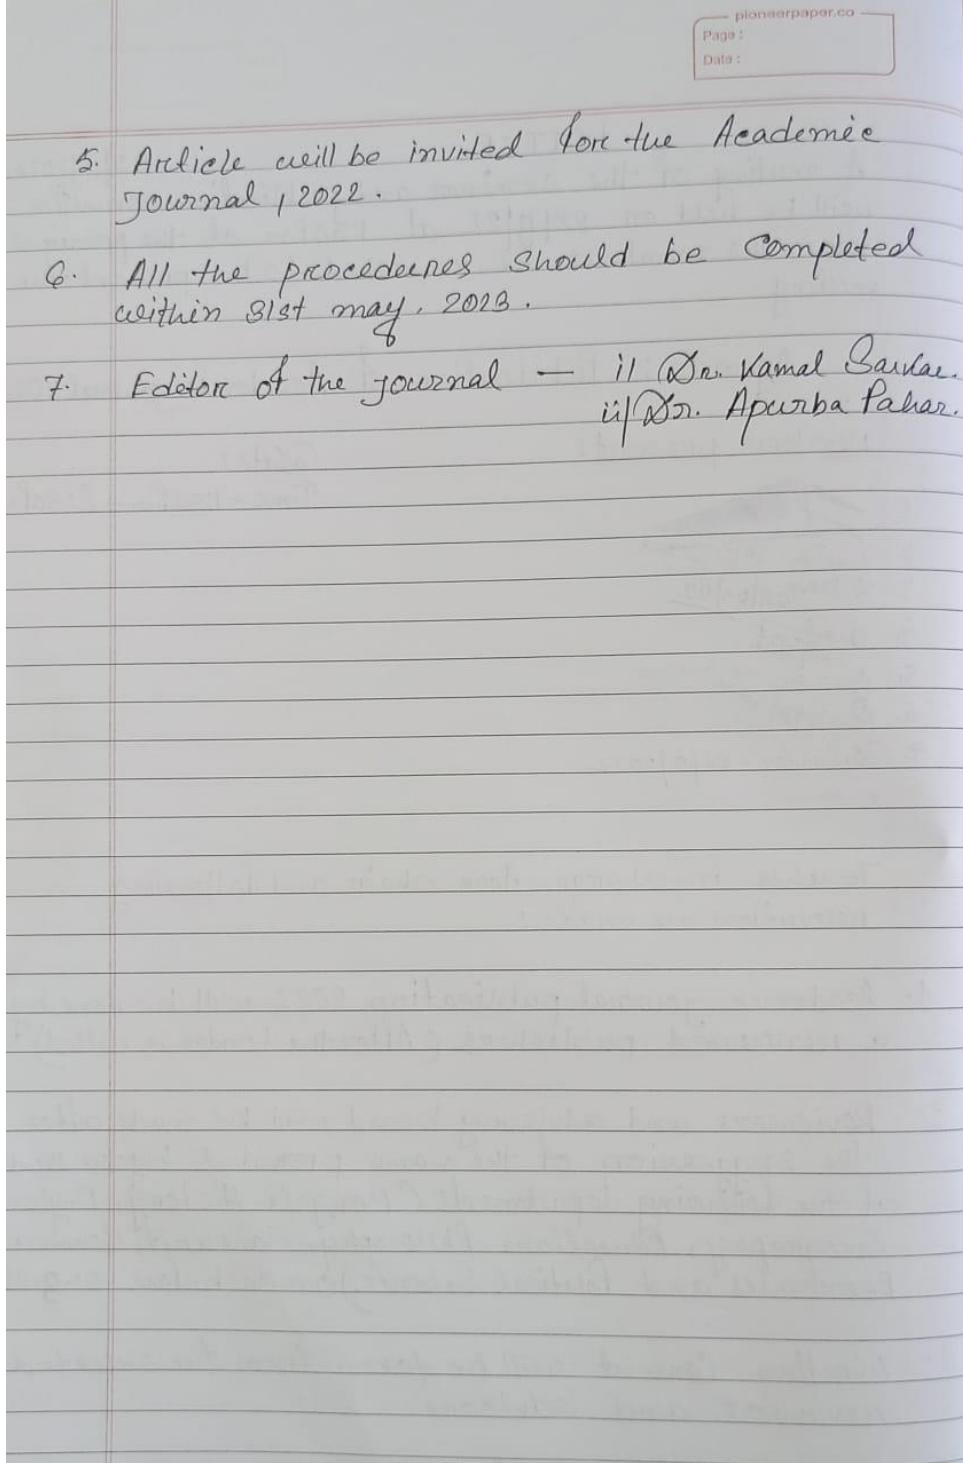 pioneerpaper.co
Page :
Date :
5. Article will be invited for the Academic
Journal, 2022.
6. All the procedures should be completed
within 31st may, 2023.
7. Editor of the journal — i/ Dr. Kamal Sarkar.
ii/ Dr. Apurba Pahar.